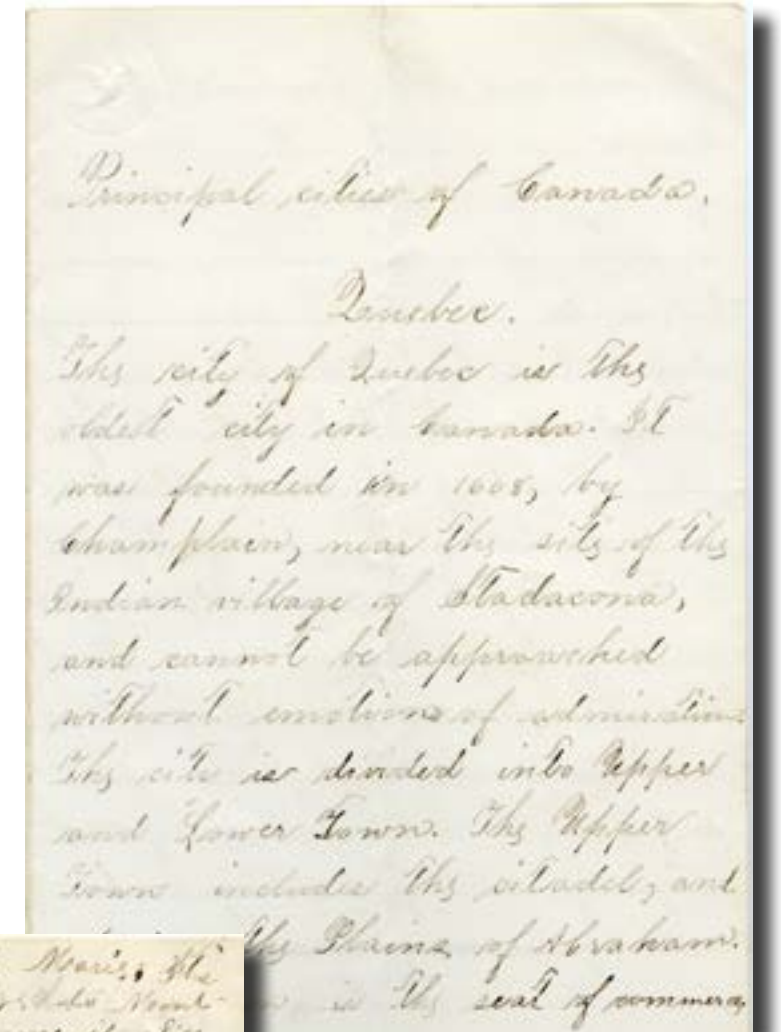 Principal cities of Canada.
Quebec.
The city of Quebec is the
oldest city in Canada. It
was founded in 1608, by
Champlain, near the site of the
Indian village of Stadacona,
and cannot be approached
without emotions of admiration
The city is divided into Upper
and Lower Town. The Upper
Town includes the citadel, and
the Plains of Abraham.
is the seat of commerce